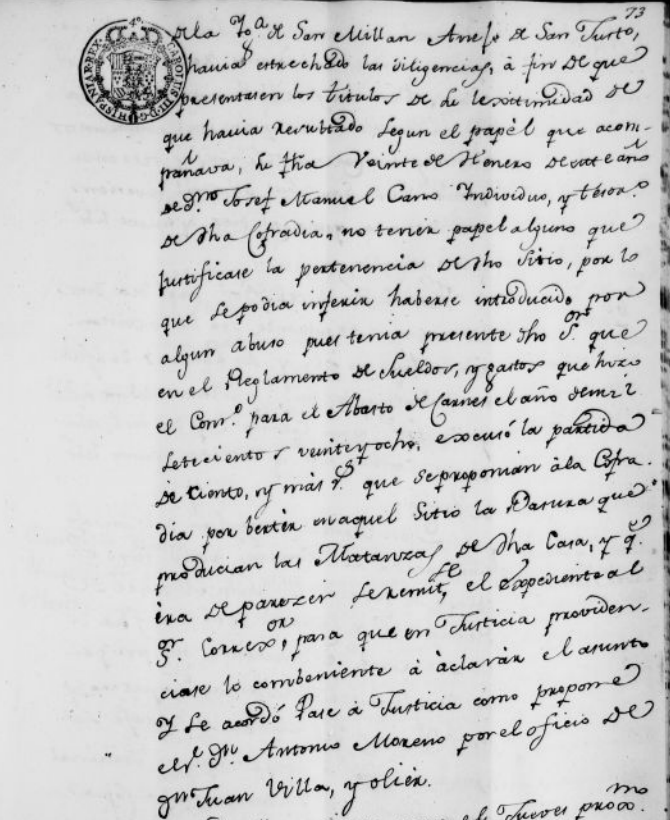 73
de la Yg.ª de San Millan Anejo de San Justo,
havia estrechado las diligencias, à fin de que
presentasen los titulos de lexitimidad de
que havia resultado segun el papèl que acom-
panava, de fha Veinte de Henero de este año
de D.n Josef Manuel Cano Individuo, y thesor.o
de dha Cofradia, no tener papel alguno que
justificase la pertenencia de dho Sitio, por lo
que se podia inferir haberse introducido por
algun abuso pues tenia presente dho S.or que
en el Reglamento de Sueldos, y gastos que hizo
el Con.o para el Abasto de Carnes el año de mil
setecientos veinte y ocho, excusó la partida
de ciento, y más r.s que se proponian à la Cofra-
dia por bertèr en aquel Sitio la Basura que
producian las Matanzas de dha Casa, y q.e
èra de parezer se remit.se el expediente al
S.or Correx.or, para que en Justicia providen-
ciase lo combeniente à àclaràr el asunto
Y se acordó Pase à Justicia como propone
el S.r D.n Antonio Moreno por el oficio de
D.n Juan Villa, y olièr.
Jueves prox.mo